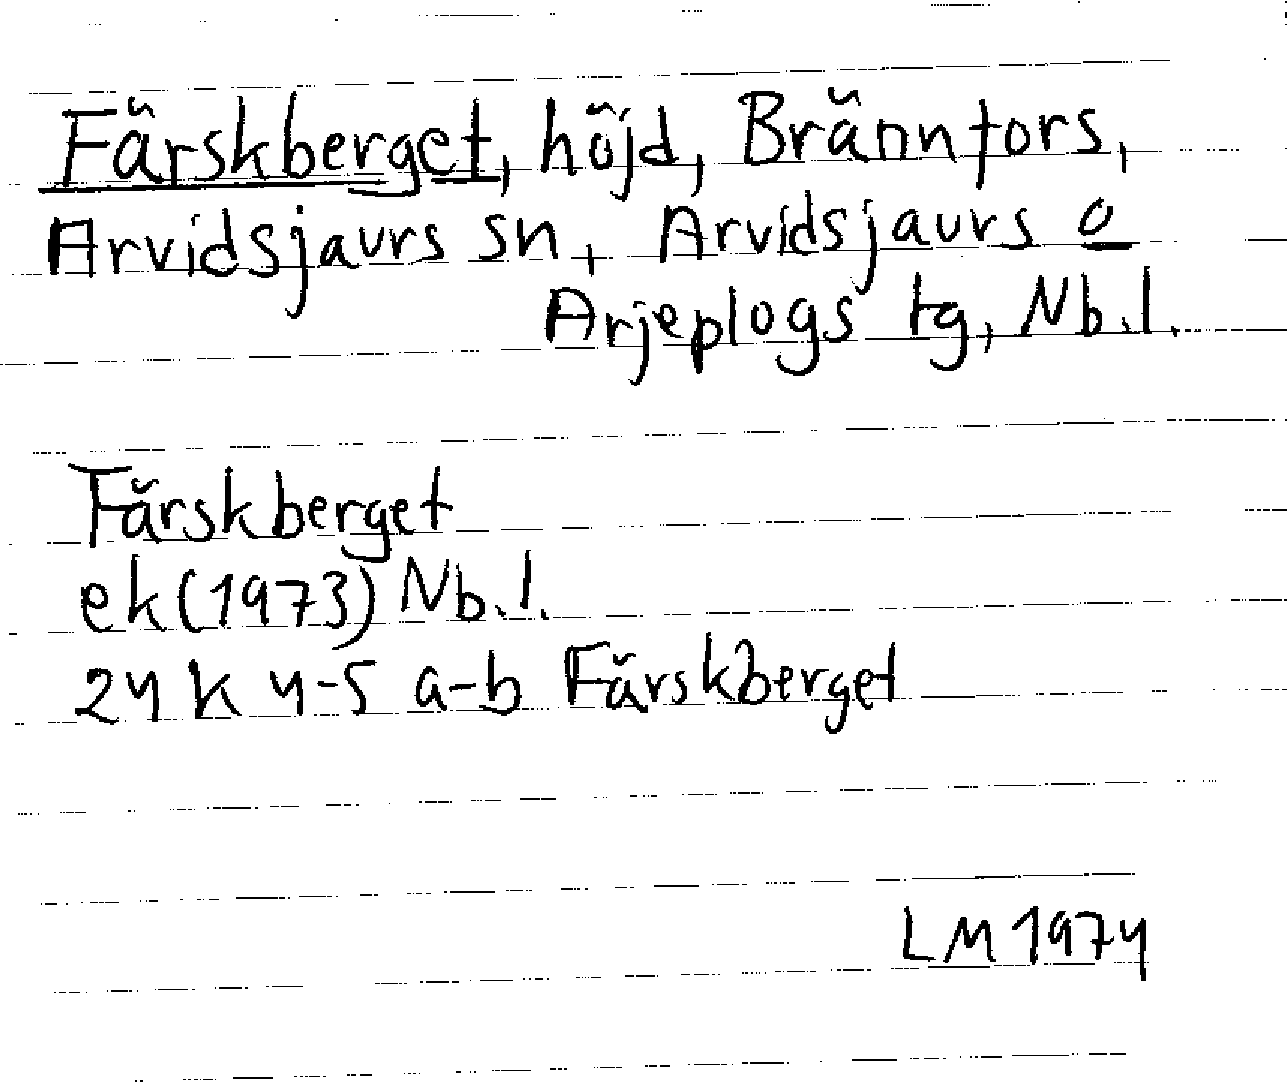 Färskberget, höjd, Bränntors,
Arvidsjaurs sn, Arvidsjaurs o
Arjeplogs tg, Nb.l.
Färskberget
ek(1973) Nb.l.
24 K 4-5 a-b Färskberget
LM 1974